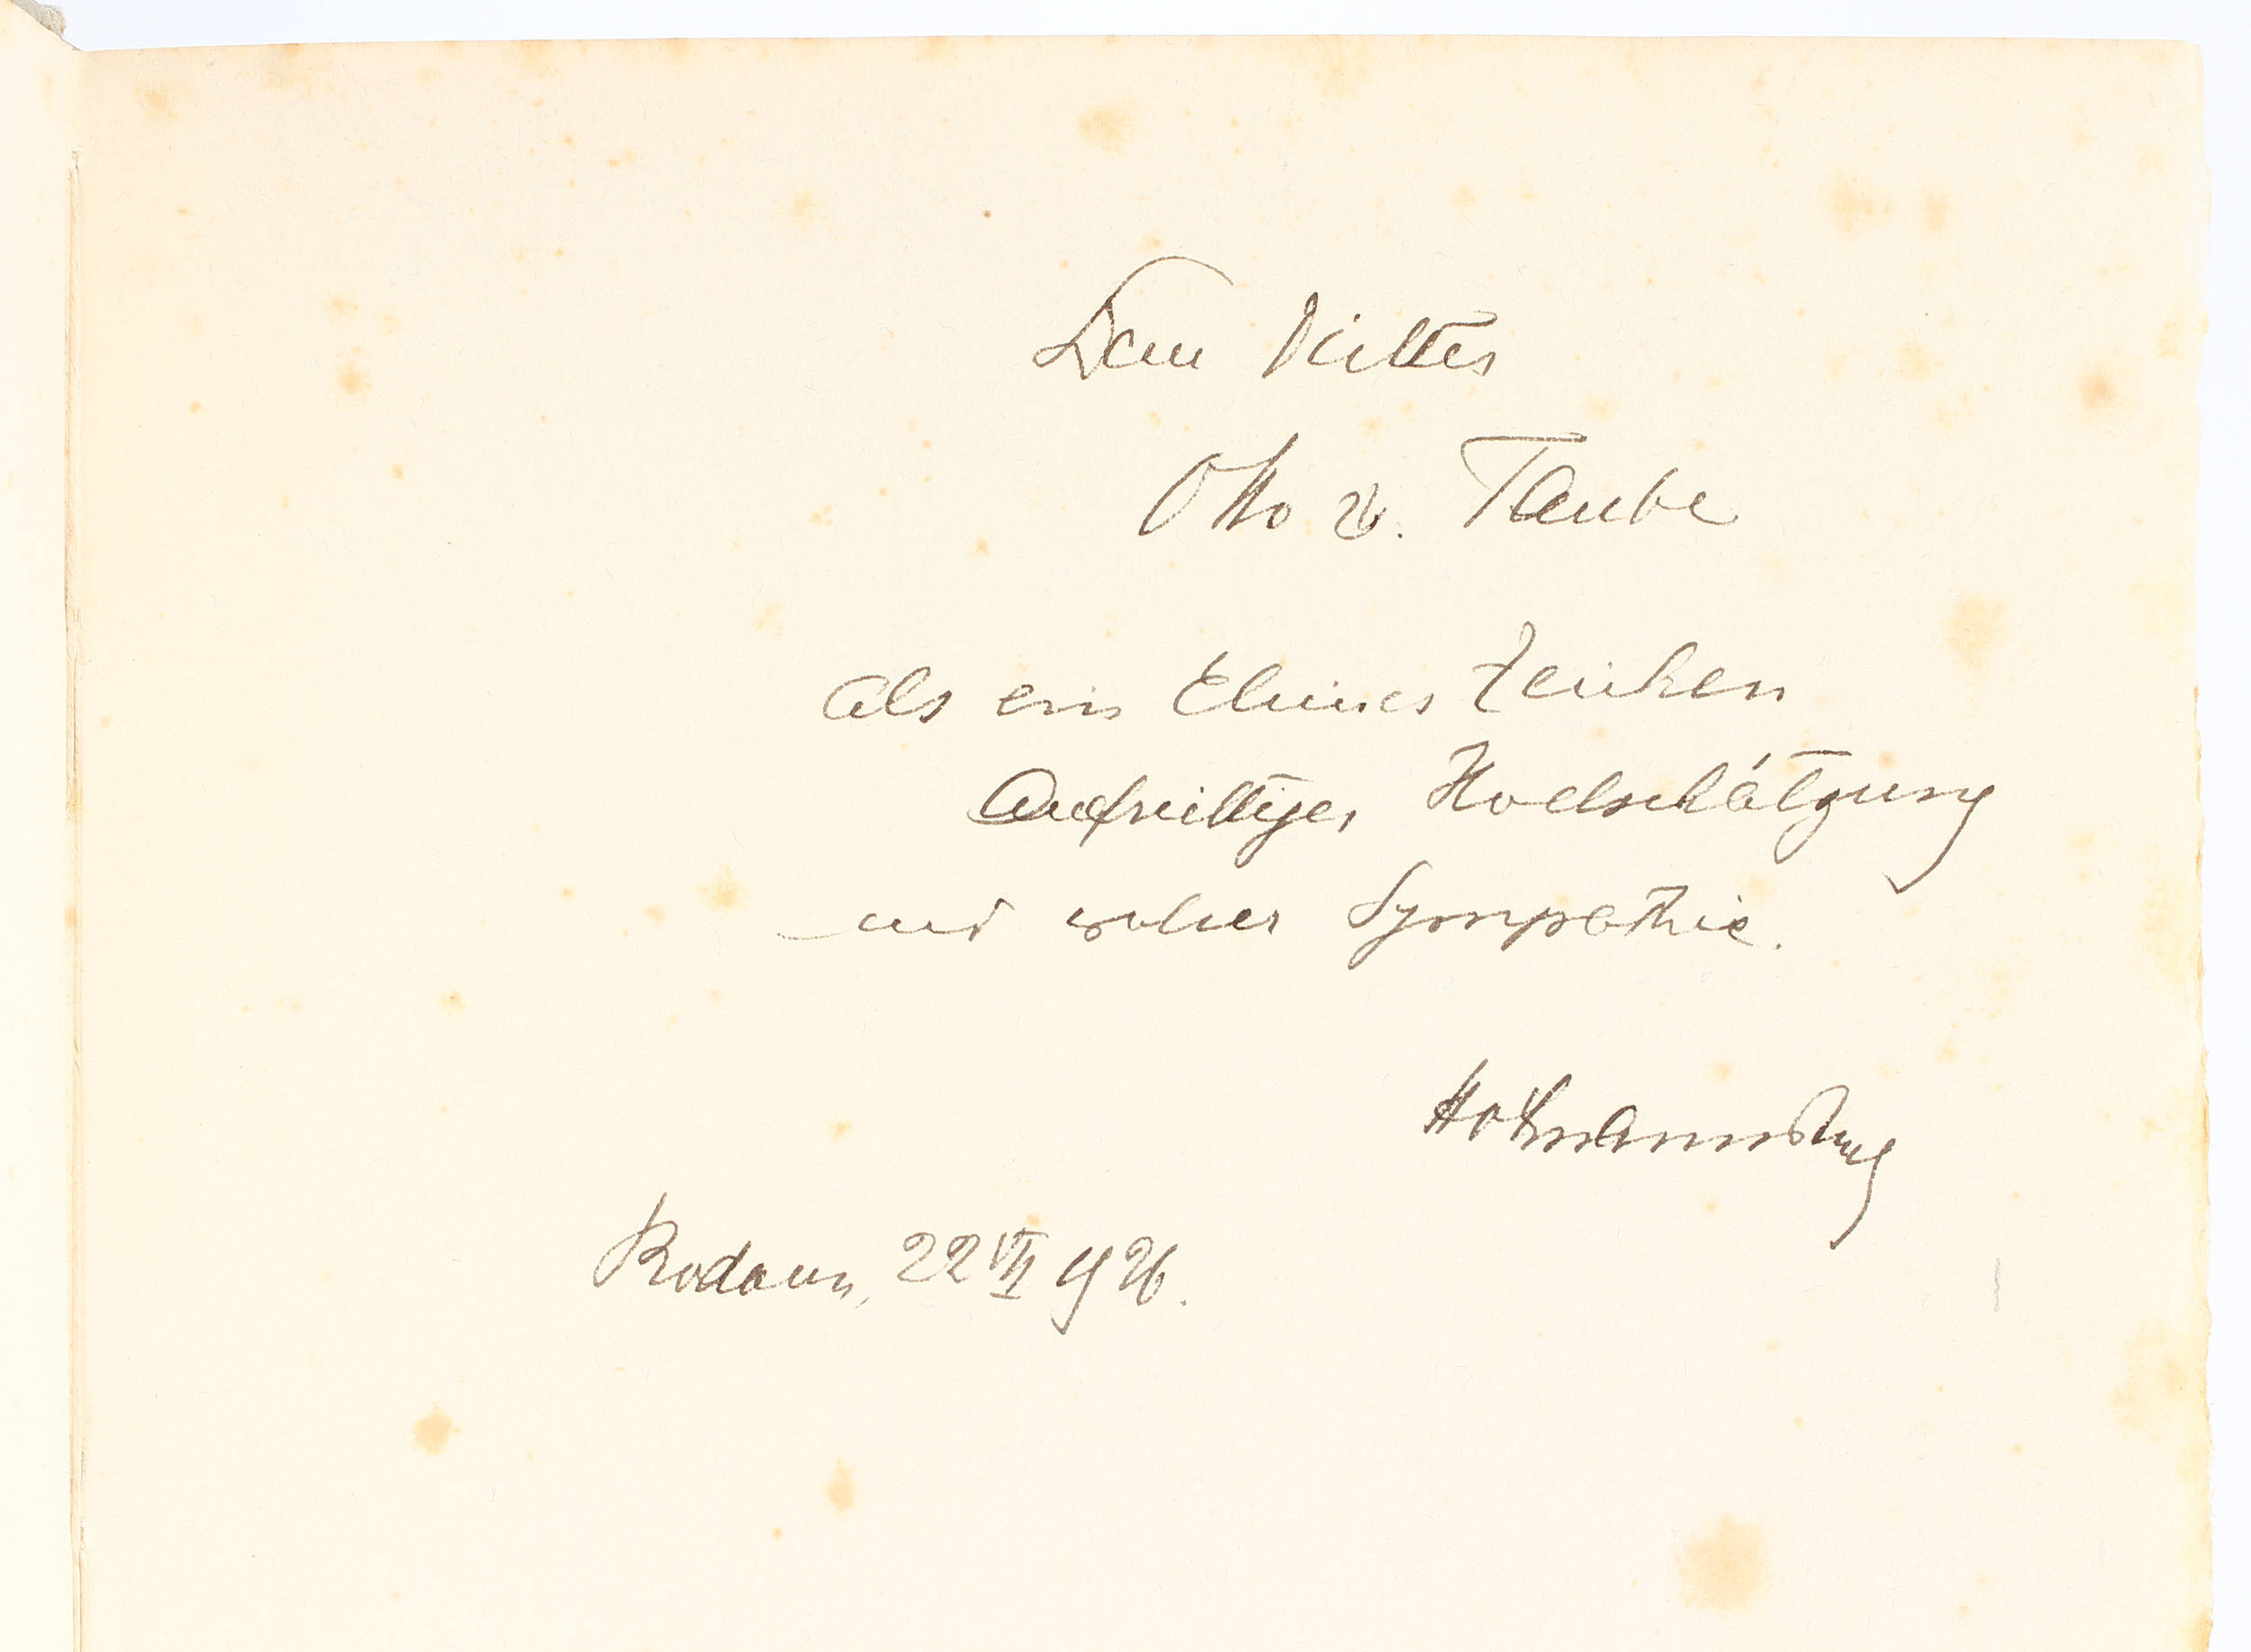 Dem Dichter
Otto v. Taube
als ein kleines Zeichen
aufrichtiger Hochschätzung
und wahrer Sympathie.
Hofmannsthal
Rodaun, 22 VII 926.